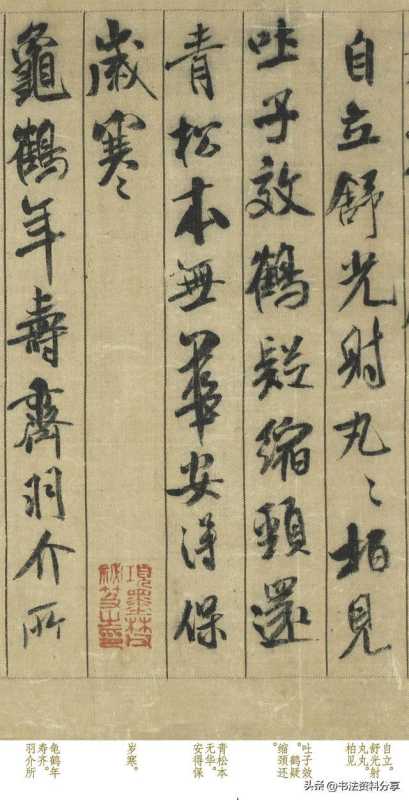 自立舒光射丸〻柏見
吐子效鶴疑縮頸還
青松本無華安得保
歲寒〻
龜鶴年壽齊羽介所
項墨林父
秘笈之印
自立。
舒光射
丸丸。
柏见
吐子效
。鹤疑
缩颈还。
青松本
无华。
安得保
岁寒。
龟鹤年
寿齐。
羽介所
头条 @书法资料分享